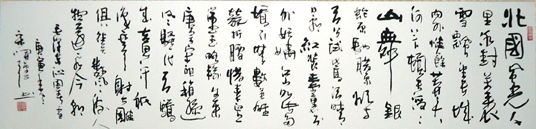 北國風光千
里冰封萬里
雪飄望長城
內外惟餘莽莽大
河上下頓失滔滔
山舞銀
蛇原馳蠟象欲與
天公試比高須晴
日看紅裝素裹
分外妖嬈江山如此多
嬌引無數英雄
競折腰惜秦皇
漢武略輸文采
唐宗宋祖稍遜
風騷一代天驕
成吉思汗只
識彎弓射大雕
俱往矣數風流人
物還看今朝
毛澤東沁園春雪
庚寅